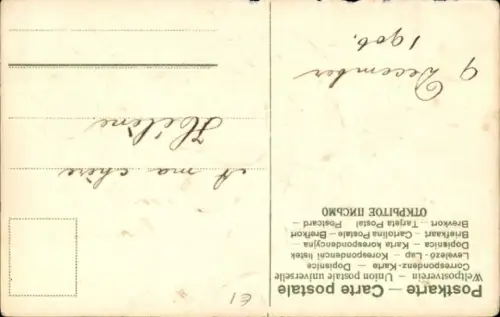 Postkarte — Carte postale
Weltpostverein — Union postale universelle
Correspondenz-Karte — Dopisnice
Levelező-Lap — Korespondencni listek
Dopisnica — Karta korespondencyjna
Briefkaart — Cartolina Postale — Brefkort
Brevkort — Tarjeta Postal — Postcard
ОТКРЫТОЕ ПИСЬМО
9 December
1906.
A ma chère
Hélène
E1